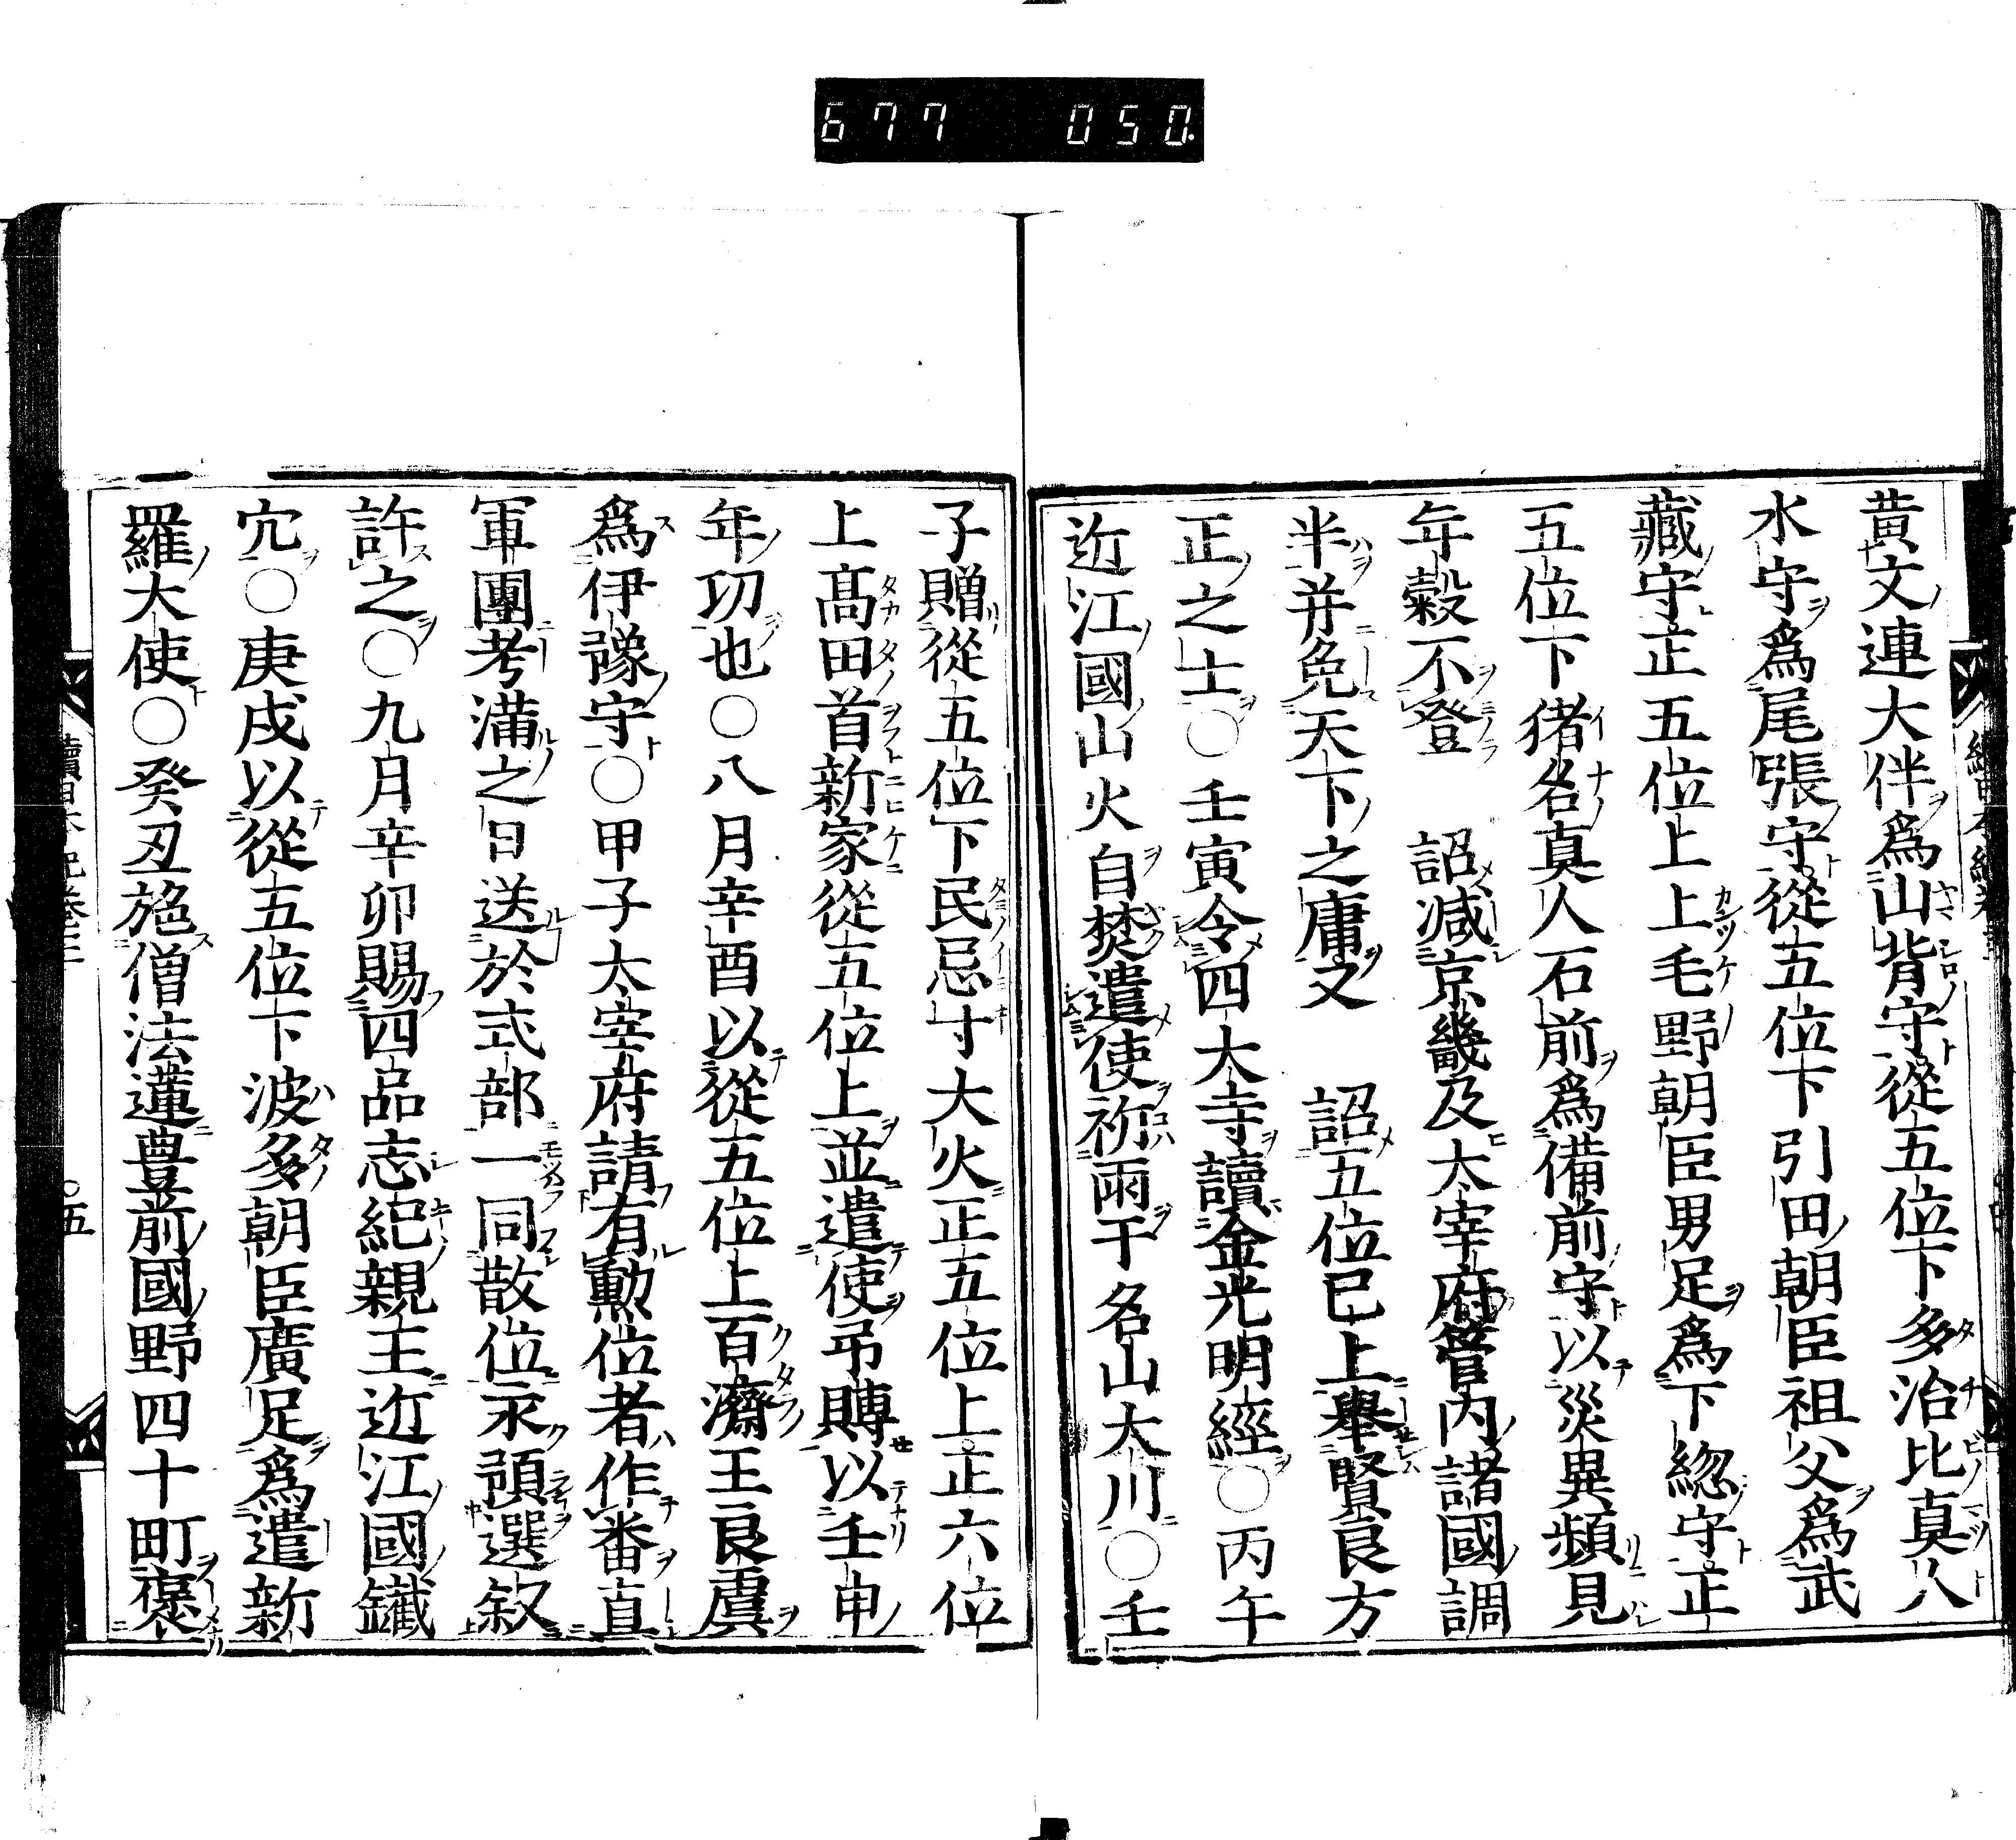 677 050.
黄文連大伴爲山背守從五位下多治比真人
水守爲尾張守從五位下引田朝臣祖父爲武
藏守正五位上上毛野朝臣男足爲下総守正
五位下猪名真人石前爲備前守以災異頻見
年穀不登 詔減京畿及太宰府管内諸國調
半并免天下之庸又 詔五位已上舉賢良方
正之士○壬寅令四大寺讀金光明經○丙午
近江國山火自焚遣使祈雨于名山大川○壬
子贈從五位下民忌寸大火正五位上正六位
上髙田首新家從五位上並遣使弔賻以壬申
年功也○八月辛酉以從五位上百濟王良虞
爲伊豫守○甲子太宰府請有勳位者作番直
軍團考滿之日送於式部一同散位永預選叙
許之○九月辛卯賜四品志紀親王近江國鐵
穴○庚戌以從五位下波多朝臣廣足爲遣新
羅大使○癸丑施僧法蓮豊前國野四十町褒
續日本紀巻三
○五